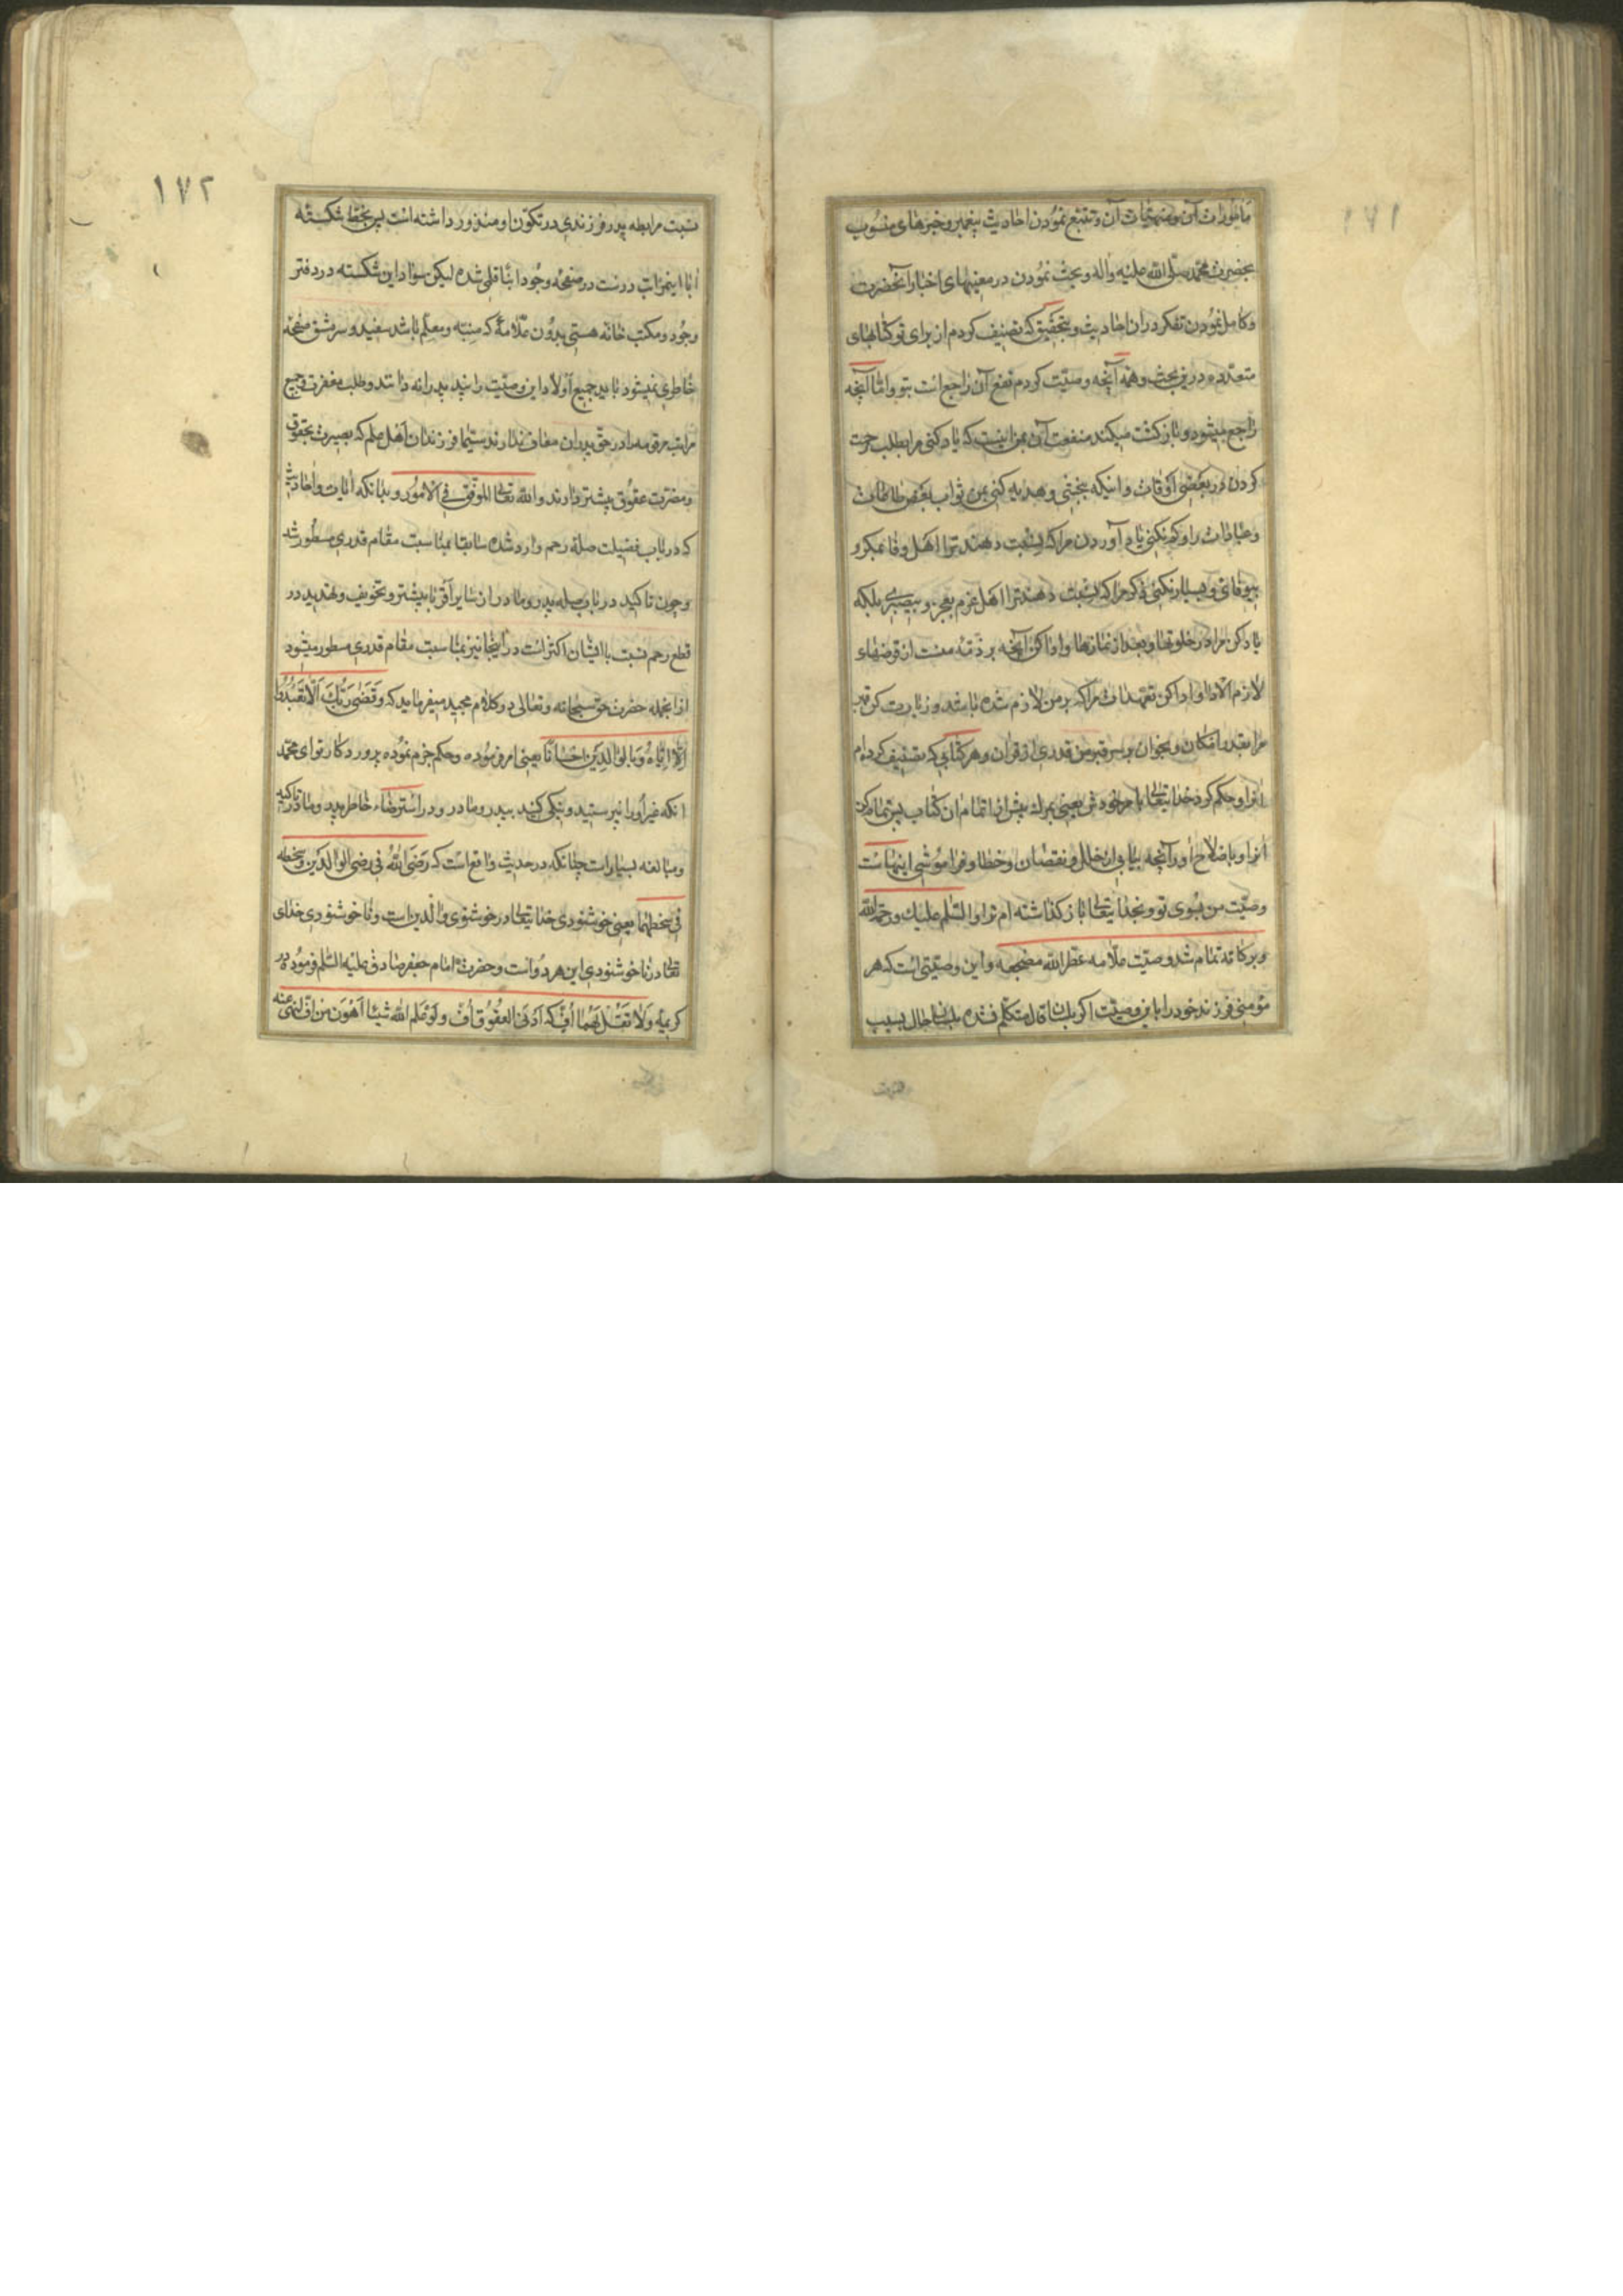 ۱۷۱
مأمورات آن و منهیات آن و تتبع نمودن احادیث پیغمبر و خبرهای منسوب
بحضرت محمد صلی الله علیه واله و بحث نمودن در معنیهای اخبار آنحضرت
و کامل نمودن تفکر در ان احادیث و بتحقیق که تصنیف کردم از برای تو کتابهای
متعدده درین بحث و همه آنچه وصیت کردم نفع آن راجع است بتو و اما آنچه
راجع میشود و بازکشت میکند منفعت آن بمن اینست که یاد کنی مرا بطلب رحمت
کردن در بعضی اوقات و اینکه ببخشی و هدیه کنی بمن ثواب بعض طاعات
و عبادات را و کم نکنی یاد آوردن مرا که نسبت دهند ترا اهل وفا بمکر و
بیوفائی و بسیار نکنی ذکر مرا که نسبت دهند ترا اهل عزم بعجز و بیصبری بلکه
یاد کن مرا در خلوتها و بعد از نمازها و ادا کن آنچه بر ذمه منست از قرضهاء
لازم الادا و ادا کن تعهدات مرا که بر من لازم شده باشد و زیارت کن قبر
مرا بقدر امکان و بخوان بر سر قبر من قدری از قران و هر کتابی که تصنیف کرده‌ام
انرا و حکم کرد خدایتعالی با مر خودش یعنی بمرک پیش از اتمام ان کتاب پس تمام کن
انرا و باصلاح اور آنچه بیابی از خلل و نقصان و خطا و فراموشی اینهاست
وصیت من بسوی تو و بخدایتعالی باز کذاشته ام ترا و السلام علیک و رحمة الله
و برکاته تمام شد وصیت علامه عطر الله مضجعه و این وصیتی است که هر
مؤمنی فرزند خود را باین وصیت اکر بلسان قال متکلم نشده بلسان حال بسبب
۱۷۲
نسبت مرابطه پدر فرزندی در تکون او منذور داشته است پس بخط شکسته
ابا اینمراتب درست در صفحه وجود ابنا قلمی شده لیکن سواد این شکسته در دفتر
وجود و مکتب خانه هستی بدون علامهٔ که منبه و معلم باشد سفید و سر مشق صفحه
خاطری نمیشود باید جمیع اولاد این وصیت را پند پدرانه دانند و طلب مغفرت و جمیع
مراتب مرقومه را در حق پدران معاف ندارند سیما فرزندان اهل علم که بصیرت بحقوق
و مضرت عقوق بیشتر دارند و الله تعالی الموفق فی الامور و بدانکه ایات و احادیث
که در باب فضیلت صله رحم وارد شده سابقا بمناسبت مقام قدری مسطور شد
و چون تاکید در باب صله پدر و مادر از سایر اقربا بیشتر و تخویف و تهدید در
قطع رحم نسبت بایشان اکثر است در اینجا نیز بمناسبت مقام قدری مسطور میشود
ازانجمله حضرت حق سبحانه و تعالی در کلام مجید میفرماید که وَقَضَی رَبُّکَ اَلَّا تَعْبُدُوا
اِلَّا اِیَّاهُ وَبِالْوَالِدَیْنِ اِحْسَانًا یعنی امر فرموده و حکم جزم نموده پرورد کار تو ای محمد
انکه غیر او را نپرستید و نیکی کنید بپدر و مادر و در استرضاء خاطر پدر و مادر تاکید
و مبالغه بسیار است چنانکه در حدیث واقع است که رَضَی اللهُ فی رضی الوالدین و سخطه
فی سخطهما یعنی خوشنودی خدایتعالی در خوشنودی والدین است و ناخوشنودی خدای
تعالی در ناخوشنودی این هر دو است و حضرت امام جعفر صادق علیه السلم فرموده در
کریمه وَلَا تَقُلْ لَهُمَا اُفٍّ که اَدْنَی العقوق اُفّ و لَوْ عَلِم الله شیئا اَهْوَن من افّ لنهی عنه